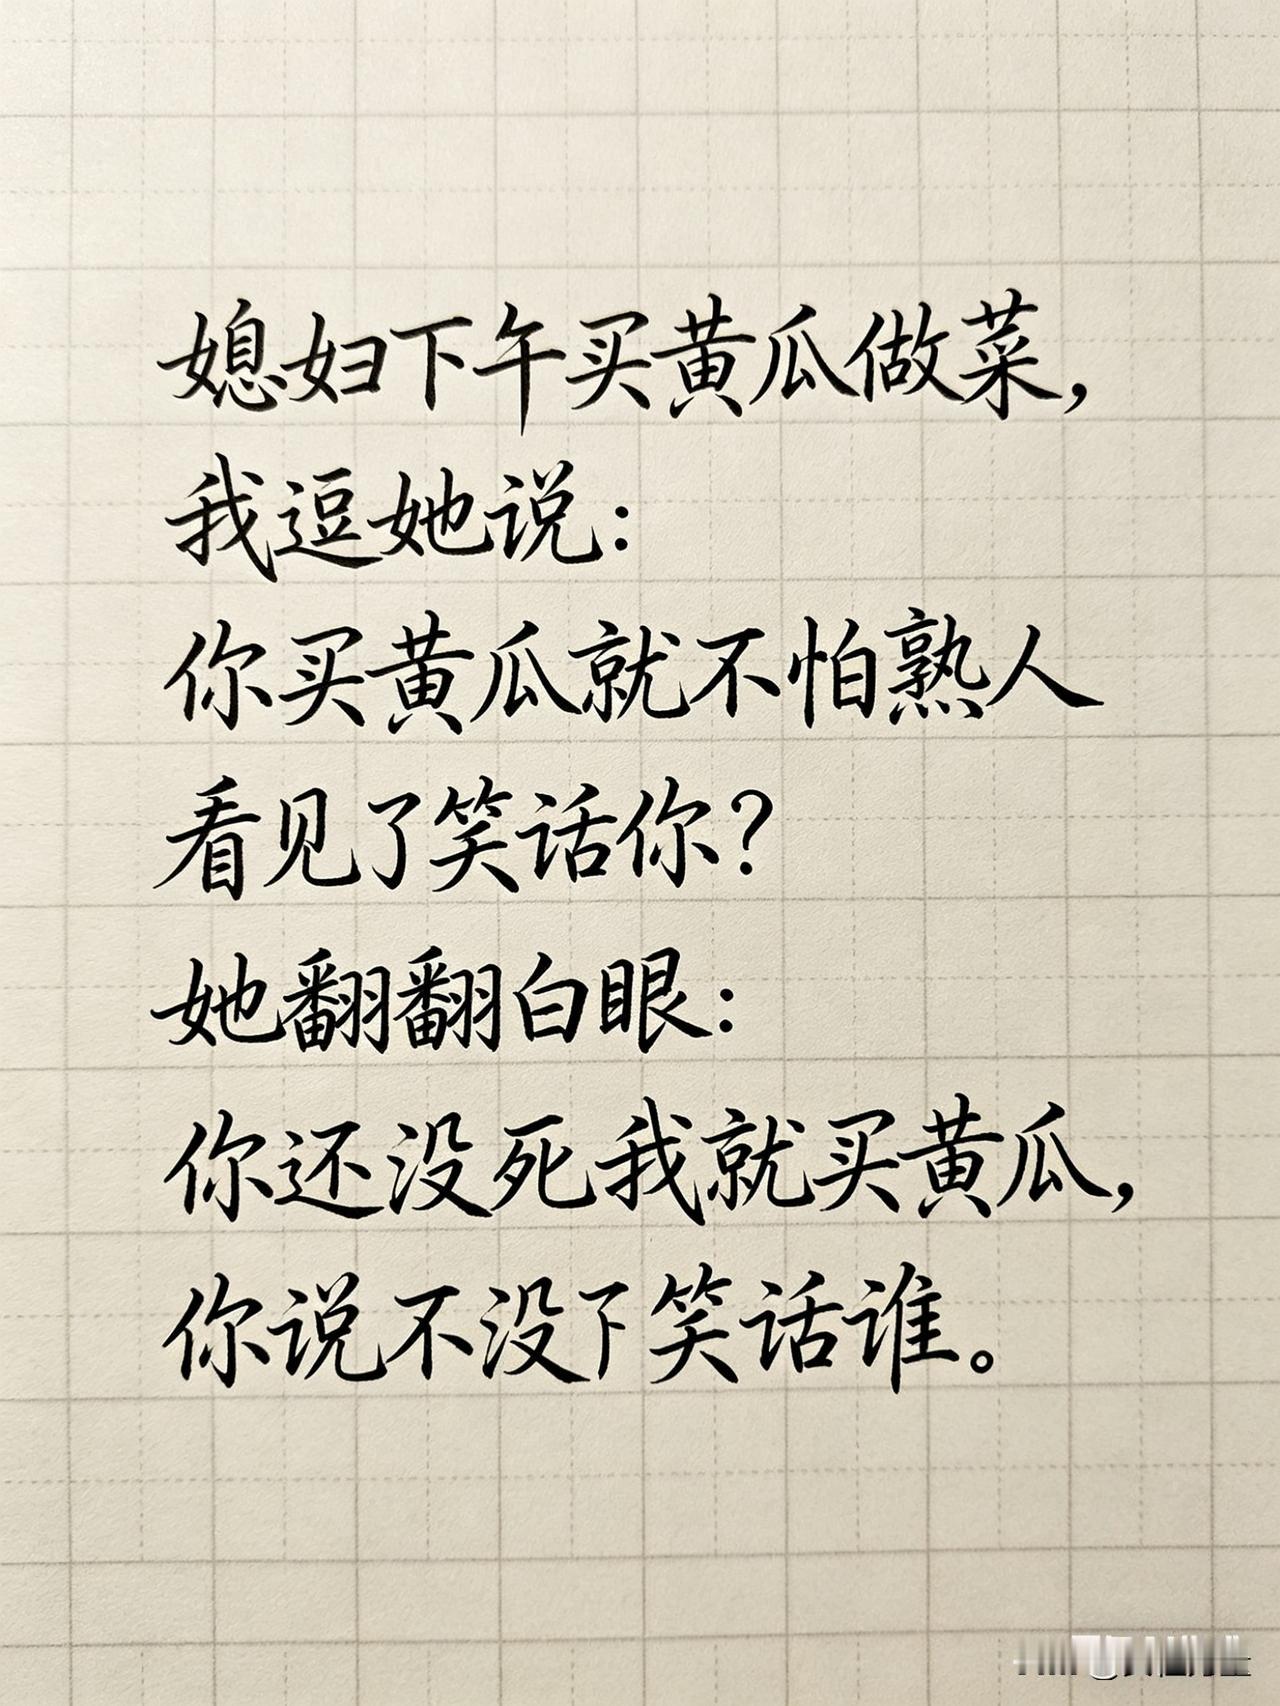 媳妇下午买黄瓜做菜，
我逗她说：
你买黄瓜就不怕熟人
看见了笑话你？
她翻翻白眼：
你还没死我就买黄瓜，
你说不没下笑话谁。